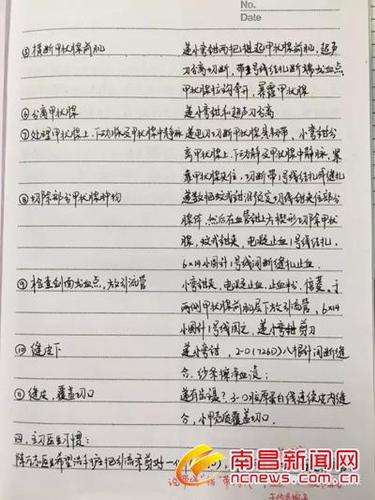 No.
Date
⑤横断甲状腺前肌 递小弯钳两把提起甲状腺前肌,超声
刀分离切断,带1号线结扎断端出血点,
甲状腺拉钩牵开,暴露甲状腺
⑥分离甲状腺 递小弯钳和超声刀分离
⑦处理甲状腺上、下动脉及甲状腺中静脉 递电刀切断甲状腺悬韧带,小弯钳分
离甲状腺上、下动静及甲状腺中静脉,
甲状腺夹住,切断带1号线结扎并缝扎
⑧切除部分甲状腺肿物 递数把蚊式钳沿预定切线钳夹住部分
腺体,然后在血管钳上方楔形切除甲状
腺,蚊式钳夹,电凝止血1号线结扎,
6×14小圆针1号线间断缝扎止血
⑨检查创面出血点,放引流管 小弯钳夹,电凝止血,止血
两侧甲状腺前肌层下放引流管,6×14
小圆针1号线固定,递小弯钳剪刀
⑩缝皮下 递小弯钳,2-0八根针间断缝
合,纱条擦净血渍;
⑪缝皮,覆盖切口 3-0线连续皮内缝
合,小覆盖切口.
四、主刀医生习惯:
南昌新闻网
ncnews.com.cn